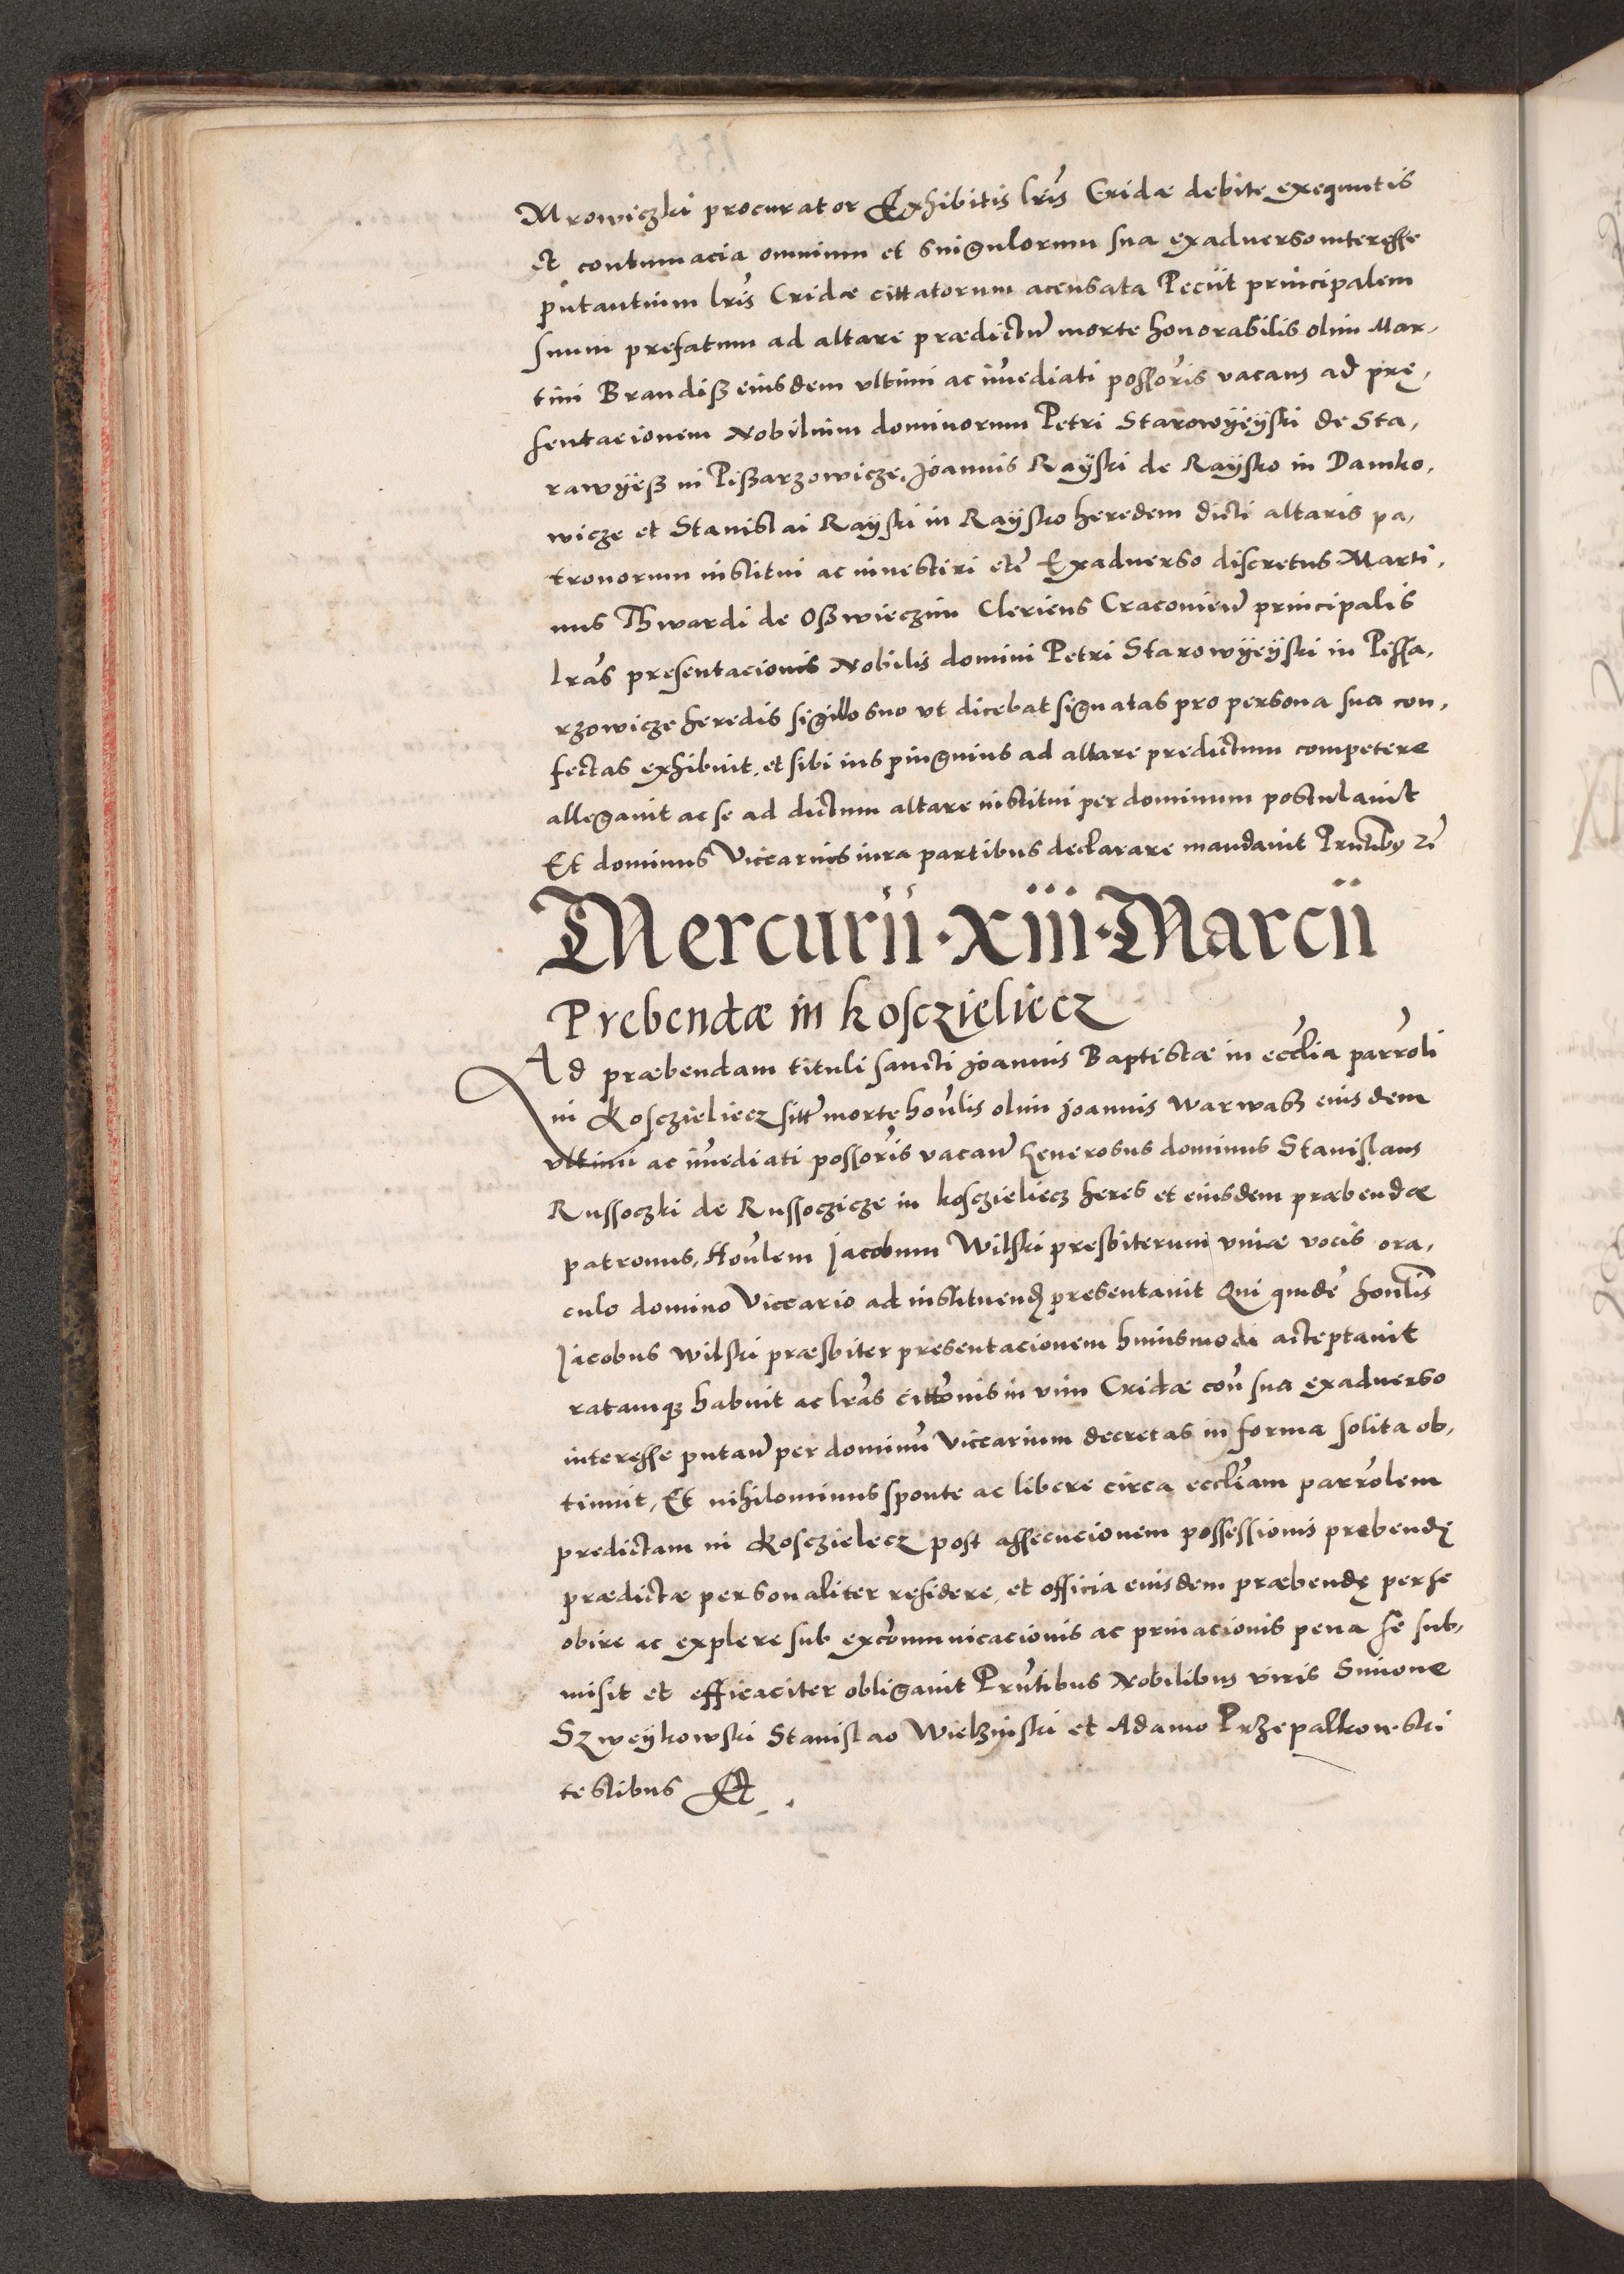 Mrowiczki procurator Exhibitis lris Cridæ debite exequutis
et contumacia omnium et singulorum sua exadverso interesse
putantium lris Cridæ cittatorum accusata Peciit principalem
suum prefatum ad altare prædictum morte honorabilis olim Mar,
tini Brandisz eiusdem vltimi ac im̄ediati possoris vacans ad prę,
sentacionem Nobilium dominorum Petri Starowyeyski de Sta,
rawyesz in Piszarzowicze, Joannis Rayski de Raysko in Danko,
wicze et Stanislai Rayski in Raysko heredem dicti altaris pa,
tronorum institui ac investiri etc̄ Exadverso discretus Marti,
nus Thwardi de Oszwieczim Clericus Cracovien̄ principalis
lrās presentacionis Nobilis domini Petri Starowyeyski in Pissa,
rzowicze heredis sigillo suo vt dicebat signatas pro persona sua con,
fectas exhibuit, et sibi ius pinguius ad altare predictum competere
allegavit ac se ad dictum altare institui per dominum postulavit
Et dominus Viccarius iura partibus declarare mandavit Prn̄tiby
Mercurii · xiii · Marcii
Prebendæ in koscziẹliecz
Ad præbendam tituli sancti Joannis Baptistæ in ecclīa parrōli
in Kosczieliecz sitt̄ morte honl̄is olim Joannis Warwasz eiusdem
vltimi ac im̄ediati possōris vacan̄ Generosus dominus Stanislaus
Russoczki de Russoczicze in kosczieliecz heres et eiusdem præbendæ
patronus, Honl̄em Jacobum Wilski presbiterum viuæ vocis ora,
culo domino Viccario ad instituend̄ presentavit Qui quidē honl̄is
Jacobus Wilski præsbiter presentacionem huiusmodi acceptavit
ratamq̨ habuit ac lrās citt̄onis in vim Cridæ con̄ sua exadverso
interesse putan̄ per dominū Viccarium decretas in forma solita ob,
tinuit, Et nihilominus sponte ac libere circa ecclīam parrōlem
predictam in Kosczielecz post assecucionem possessionis prebendę
prædictæ personaliter residere, et officia eiusdem præbendę per se
obire ac explere sub excōmunicacionis ac privacionis pena se sub,
misit et efficaciter obligavit Prn̄tibus Nobilibus viris Simone
Szweykowski Stanislao Wielzinski et Adamo Przepalkowski
testibus Et